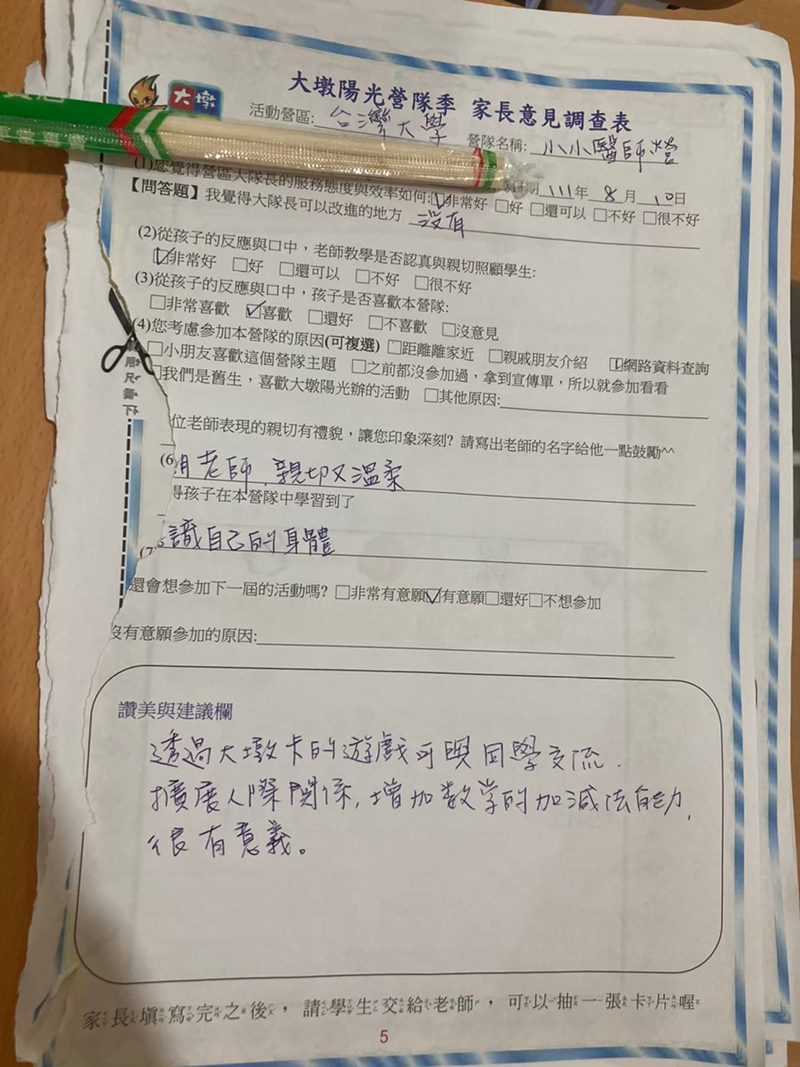 大墩
大墩陽光營隊季 家長意見調查表
活動營區: 台灣大學 營隊名稱: 小小醫師營
期 111 年 8 月 10 日
(1)您覺得營區大隊長的服務態度與效率如何: ☑非常好 □好 □還可以 □不好 □很不好
【問答題】我覺得大隊長可以改進的地方 沒有
(2)從孩子的反應與口中，老師教學是否認真與親切照顧學生:
☑非常好 □好 □還可以 □不好 □很不好
(3)從孩子的反應與口中，孩子是否喜歡本營隊:
□非常喜歡 ☑喜歡 □還好 □不喜歡 □沒意見
(4)您考慮參加本營隊的原因(可複選) □距離離家近 □親戚朋友介紹 ☑網路資料查詢
□小朋友喜歡這個營隊主題 □之前都沒參加過，拿到宣傳單，所以就參加看看
□我們是舊生，喜歡大墩陽光辦的活動 □其他原因:
位老師表現的親切有禮貌，讓您印象深刻? 請寫出老師的名字給他一點鼓勵^^
(6 老師，親切又溫柔
得孩子在本營隊中學習到了
識自己的身體
(7
還會想參加下一屆的活動嗎? □非常有意願 ☑有意願 □還好 □不想參加
沒有意願參加的原因:
讚美與建議欄
透過大墩卡的遊戲可與同學交流.
擴展人際關係,增加数学的加減法能力,
很有意義。
家長填寫完之後，請學生交給老師，可以抽一張卡片喔
5